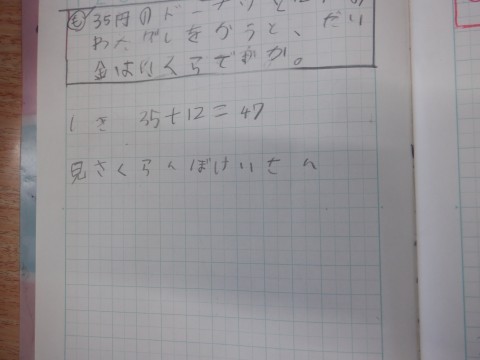 も 35円のドーナツと12円の
わたがしをかうと、だい
金はいくらですか。
しき 35+12=47
見さくらんぼけいさん